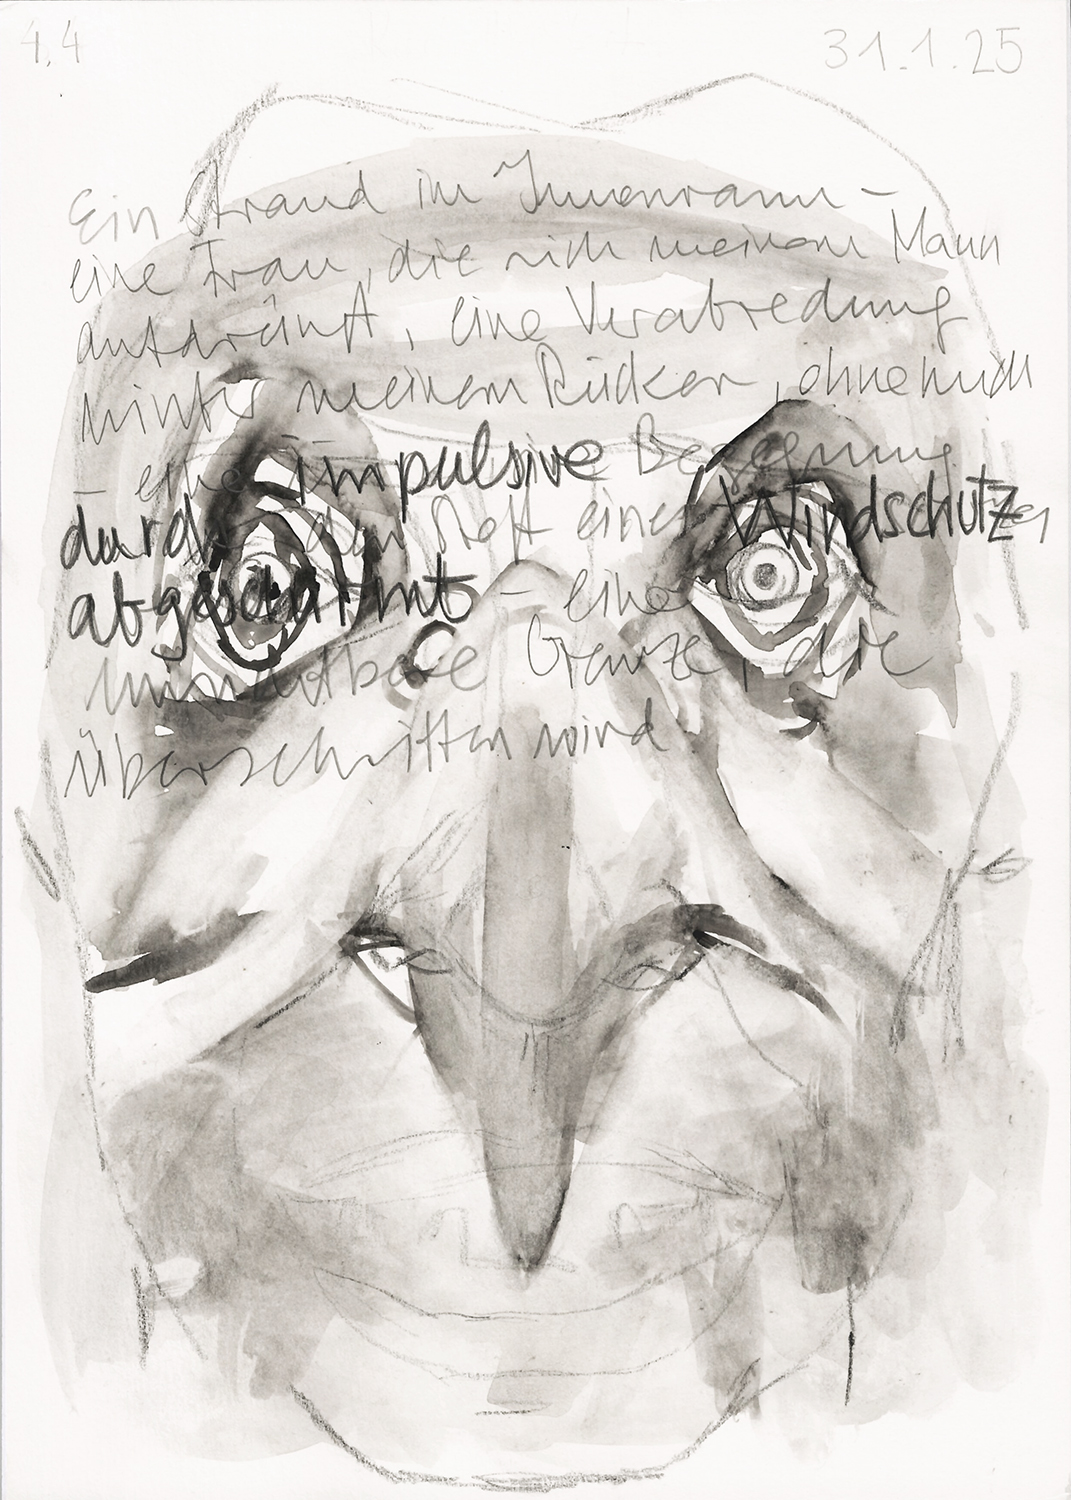 4.4
31.1.25
Ein Strand im Innenraum -
eine Frau, die sich meinem Mann
aufdrängt, eine Verabredung
hinter meinem Rücken, ohne mich
- eine impulsive Begegnung
durch den Stoff eines Windschutzes
abgeschirmt - eine
unsichtbare Grenze, die
überschritten wird